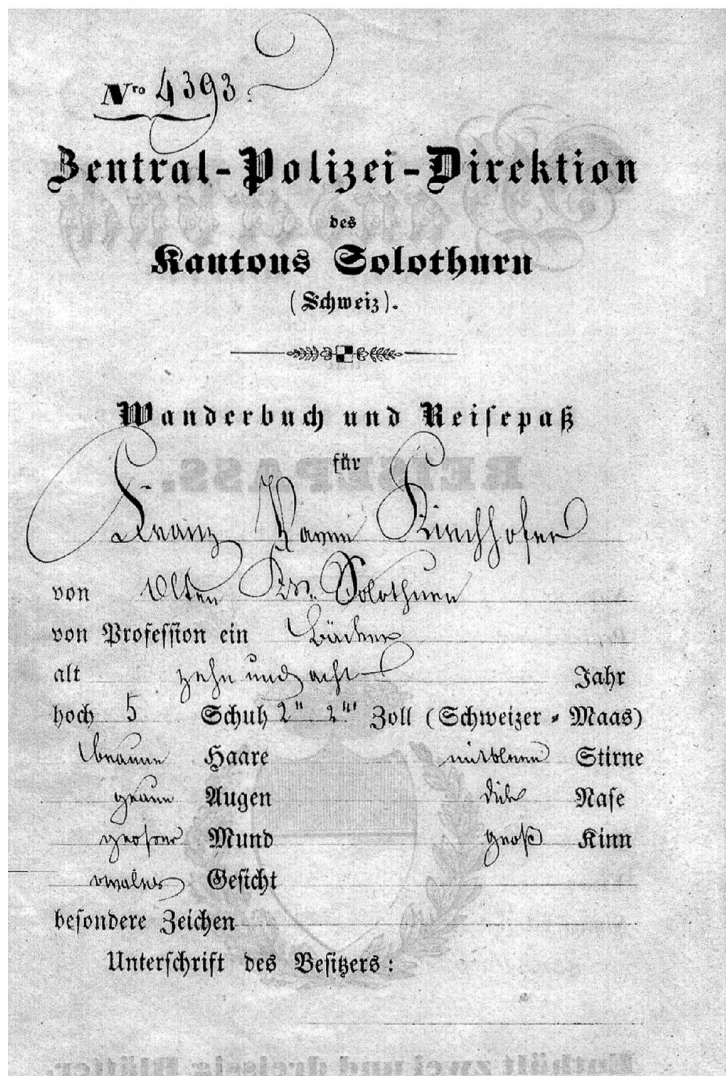 Nro 4393.
Zentral-Polizei-Direktion
des
Kantons Solothurn
(Schweiz).
Wanderbuch und Reisepaß
für
Franz Xaver Kirchhofer
von Olten Kt. Solothurn
von Profession ein Bäcker
alt zehn und acht Jahr
hoch 5 Schuh 2" 2''' Zoll (Schweizer-Maas)
braune Haare mittlere Stirne
graue Augen dicke Nase
großer Mund groß Kinn
ovales Gesicht
besondere Zeichen
Unterschrift des Besitzers:
REISEPASS.
Enthält zwei und dreissig Blätter.